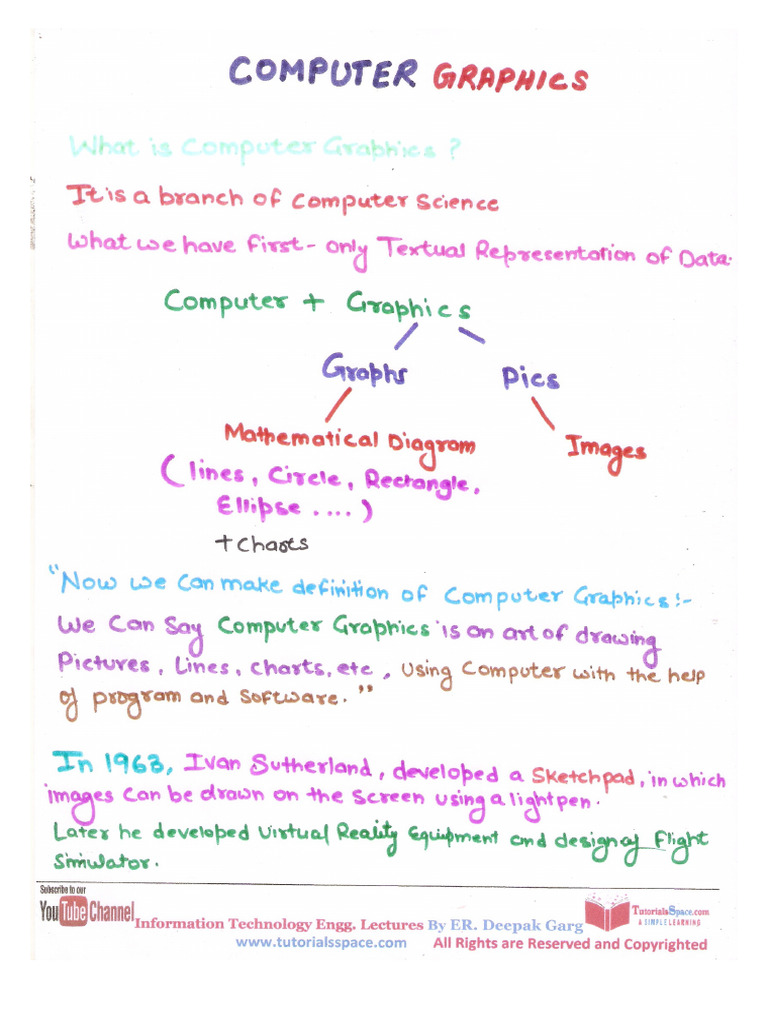 COMPUTER GRAPHICS
What is Computer Graphics ?
It is a branch of Computer Science
What we have first - only Textual Representation of Data.
Computer + Graphics
Graphs Pics
Mathematical Diagram Images
(lines, Circle, Rectangle,
Ellipse ....)
+ Charts
"Now we Can make definition of Computer Graphics:-
We Can Say Computer Graphics is an art of drawing
Pictures, Lines, Charts, etc, Using Computer with the help
of program and Software."
In 1963, Ivan Sutherland, developed a Sketchpad, in which
images Can be drawn on the Screen using a light pen.
Later he developed Virtual Reality Equipment and design of Flight
Simulator.
Subscribe to our
YouTube Channel
Information Technology Engg. Lectures By ER. Deepak Garg
TutorialsSpace.com
A SIMPLE LEARNING
www.tutorialsspace.com All Rights are Reserved and Copyrighted